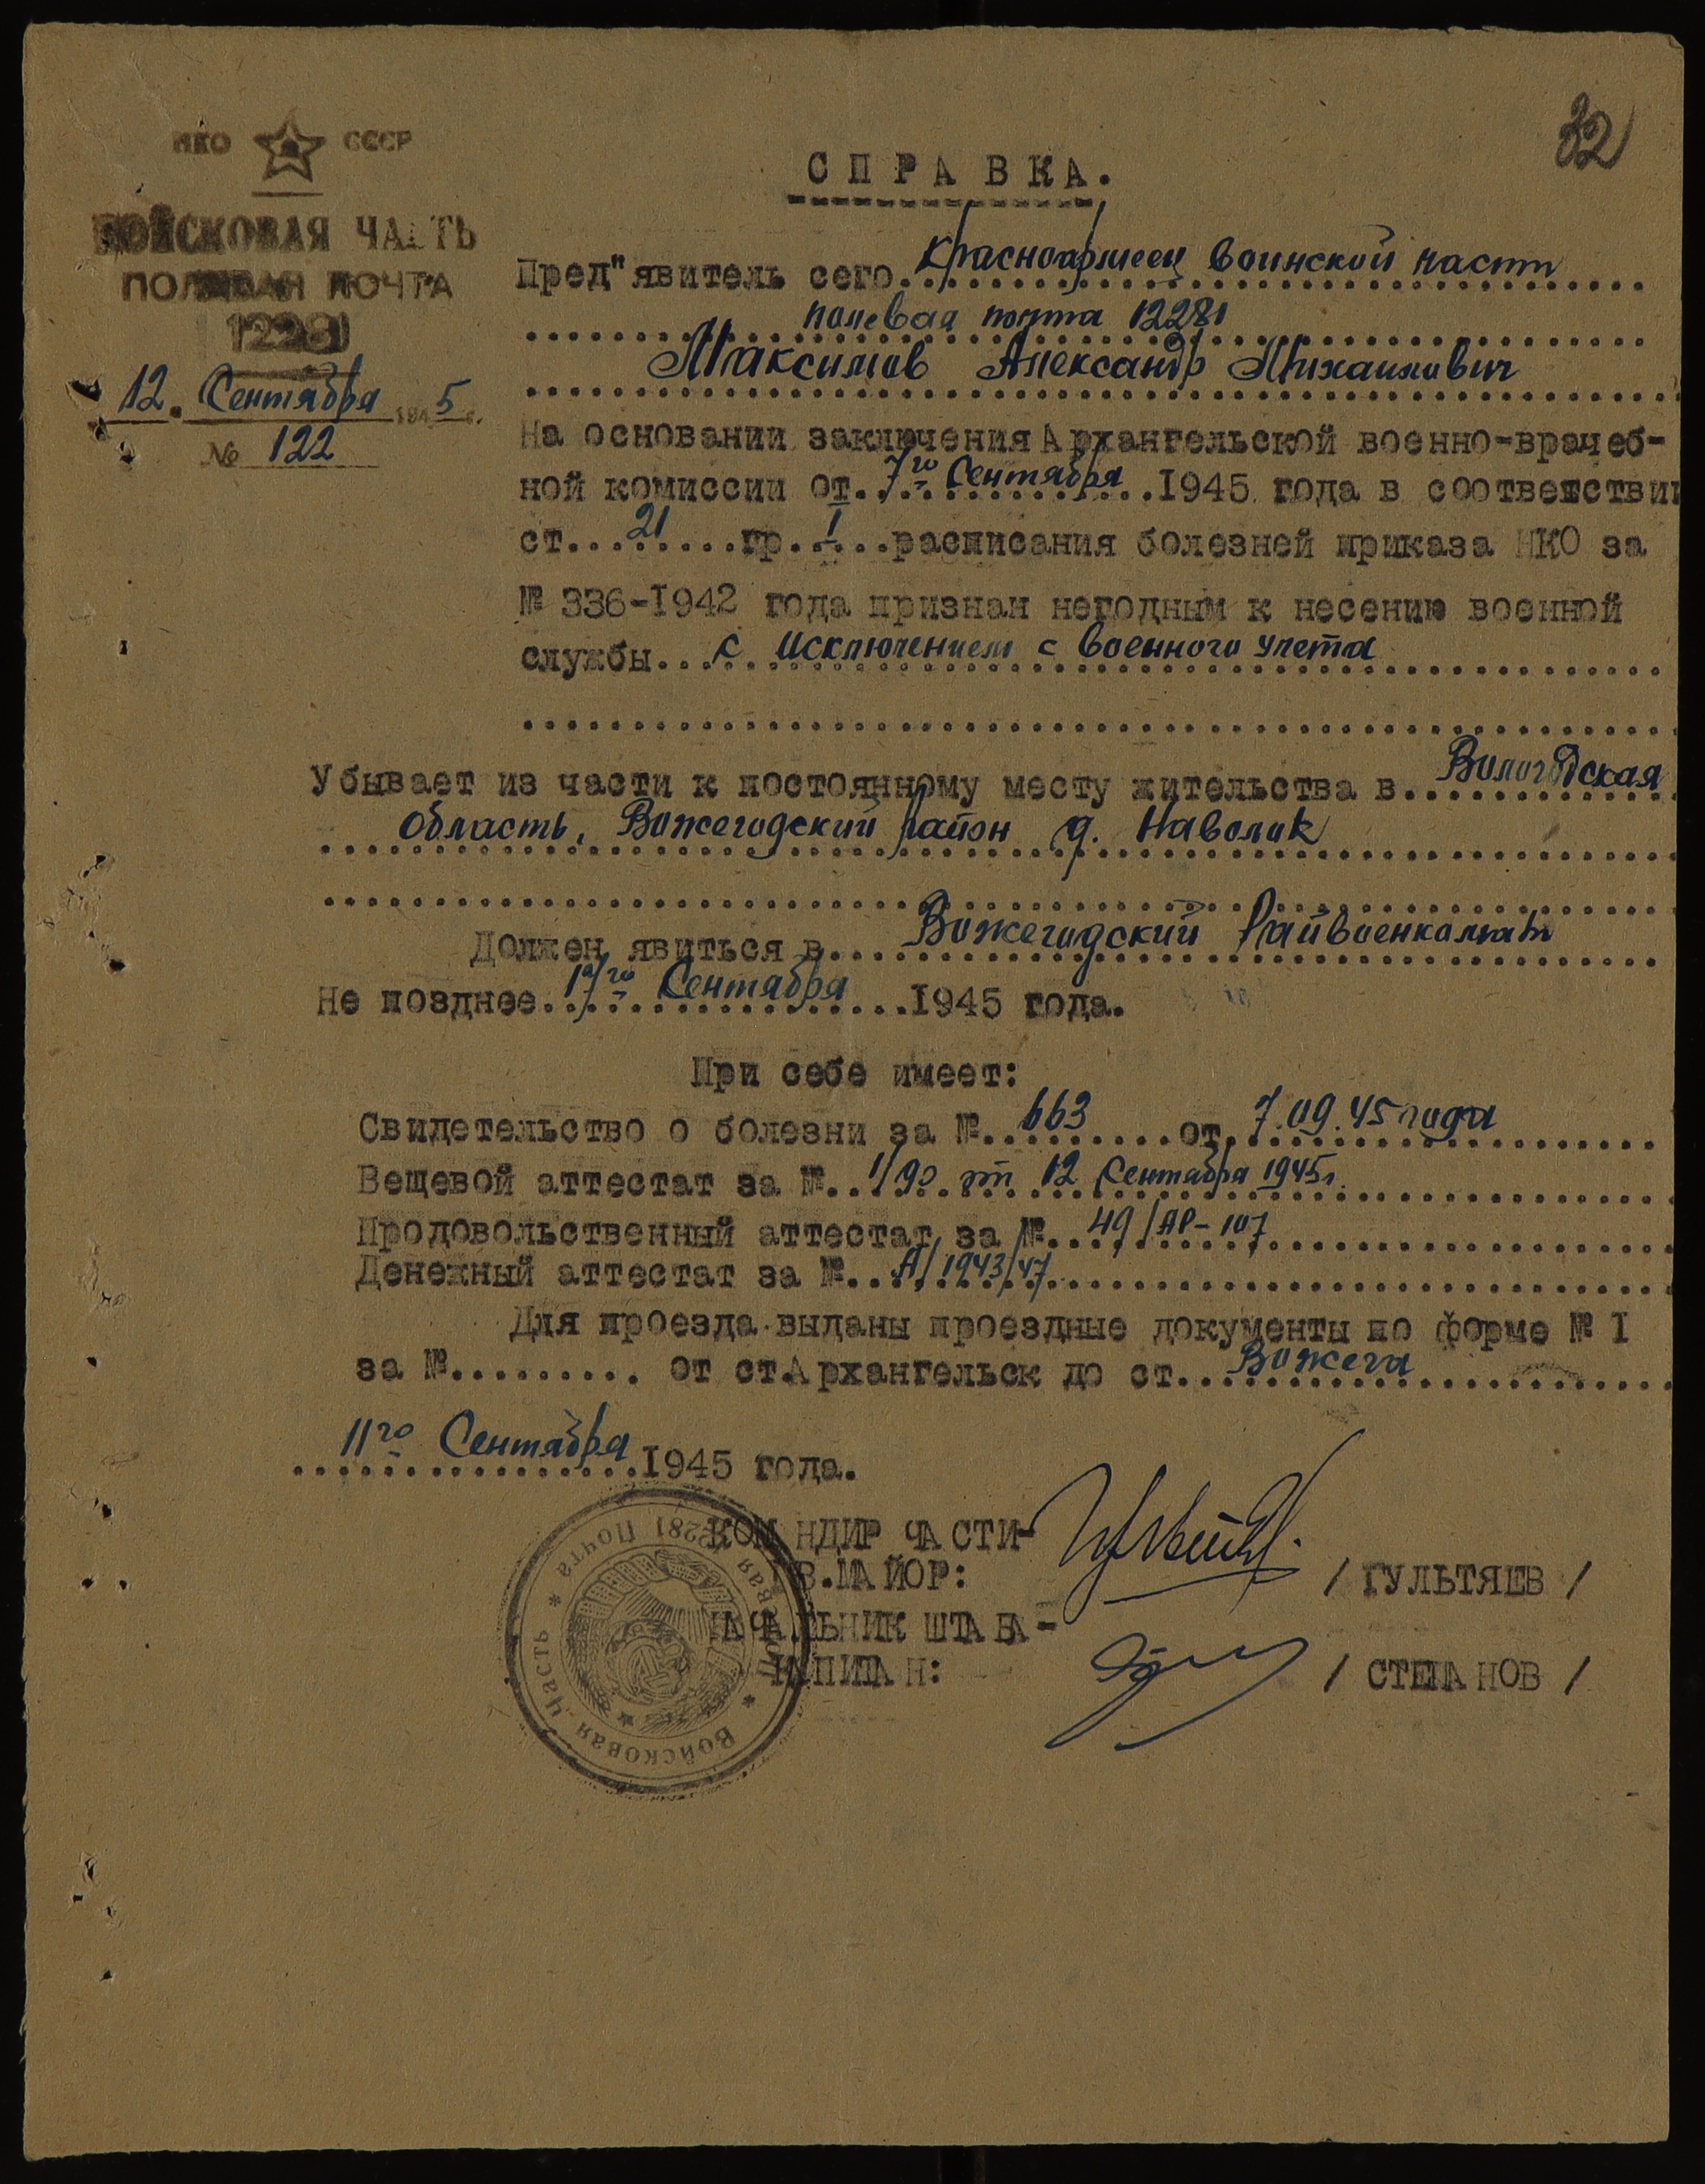 32
НКО СССР
ВОЙСКОВАЯ ЧАСТЬ
ПОЛЕВАЯ ПОЧТА
12281
12. Сентября 1945 г.
№ 122
СПРАВКА.
Пред"явитель сего. Красноармеец воинской части
полевая почта 12281
Максимов Александр Михаилович
На основании заключения Архангельской военно-врачеб-
ной комиссии от. 7го Сентября .1945 года в соответствии
ст. 21 гр. I расписания болезней приказа НКО за
№ 336-1942 года признан негодным к несению военной
службы. с исключением с военного учета
Убывает из части к постоянному месту жительства в. Вологодская
область, Вожегодский район д. Наволок
Должен явиться в. Вожегодский Райвоенкомат
Не позднее. Сентября .1945 года.
При себе имеет:
Свидетельство о болезни за №. 663 от. 7.09.45 года
Вещевой аттестат за №. 1/90 от 12 Сентября 1945г.
Продовольственный аттестат за №. 49/АР-107
Денежный аттестат за №. А/1943/47
Для проезда выданы проездные документы по форме № I
за №.......... от ст.Архангельск до ст. Вожега
11го Сентября 1945 года.
КОМАНДИР ЧАСТИ-
ГВ.МАЙОР: / ГУЛЬТЯЕВ /
НАЧАЛЬНИК ШТАБА-
КАПИТАН: / СТЕПАНОВ /
Войсковая Часть * Полевая Почта 12281 *